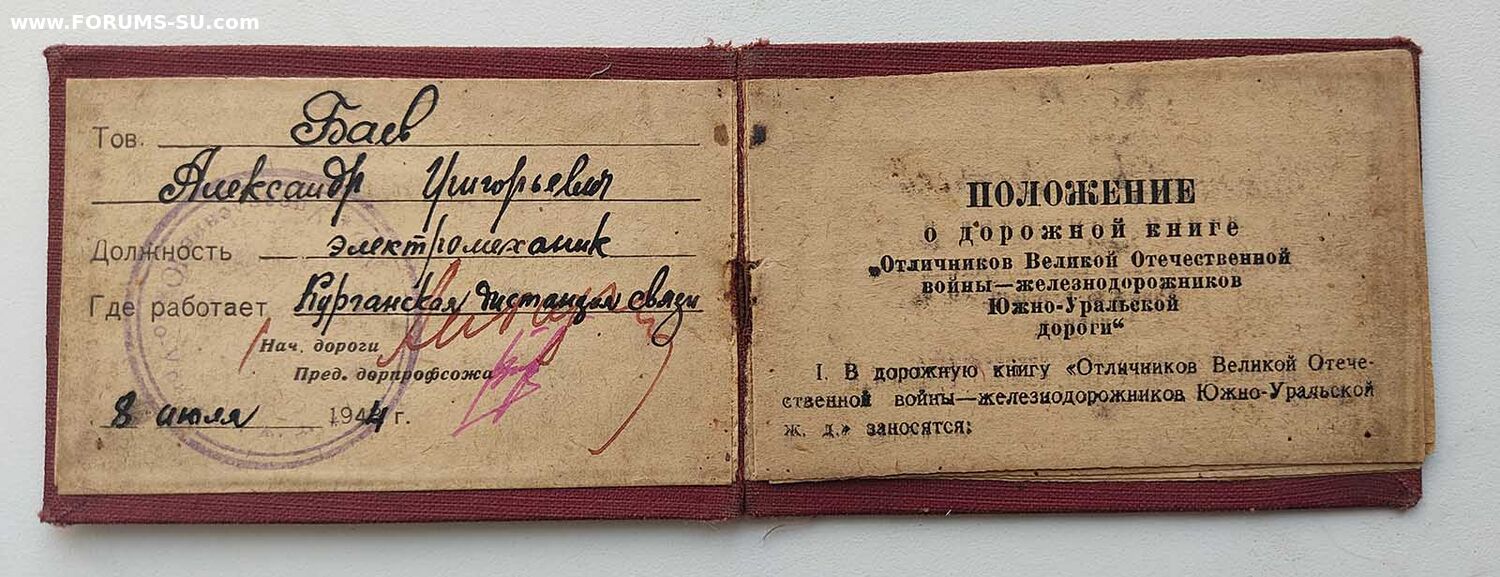 www.FORUMS-SU.com
Тов. Баев
Александр Григорьевич
Должность электромеханик
Где работает Курганская дистанция связи
Нач. дороги
Пред. дорпрофсожа
8 июля 1944 г.
ПОЛОЖЕНИЕ
о дорожной книге
„Отличников Великой Отечественной
войны—железнодорожников
Южно-Уральской
дороги“
I. В дорожную книгу «Отличников Великой Отече-
ственной войны—железнодорожников Южно-Уральской
ж. д.» заносятся: